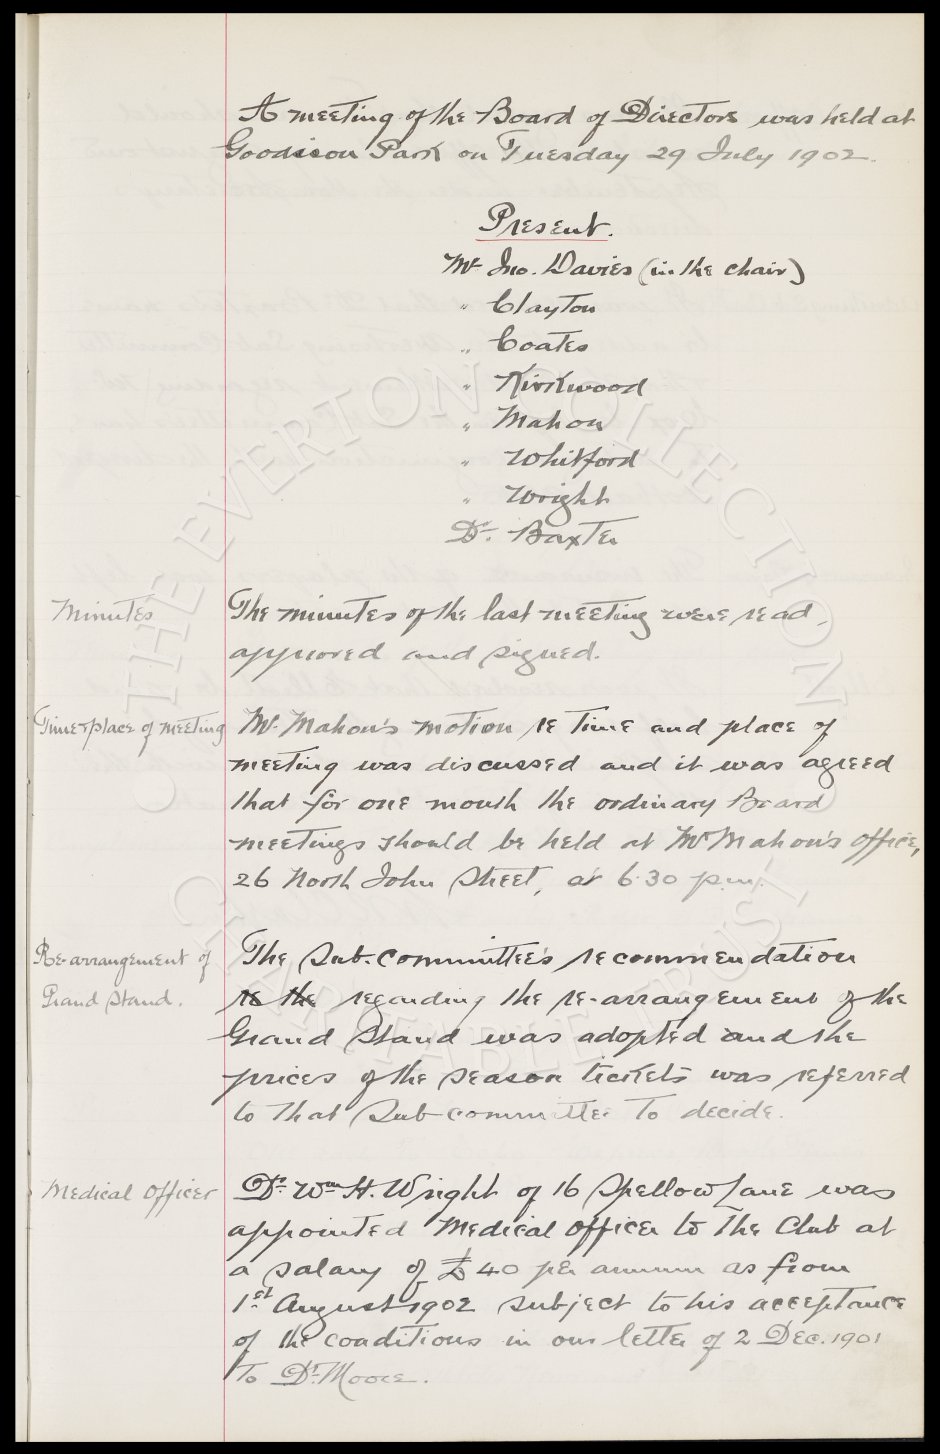 A meeting of the Board of Directors was held at
Goodison Park on Tuesday 29 July 1902.
Present.
Mr. Jno. Davies (in the chair)
" Clayton
" Coates
" Kirkwood
" Mahon
" Whitford
" Wright
Dr. Baxter
Minutes
The minutes of the last meeting were read,
approved and signed.
Time & place of meeting
Mr. Mahon's motion re time and place of
meeting was discussed and it was agreed
that for one month the ordinary Board
meetings should be held at Mr Mahon's office,
26 North John Street, at 6.30 p.m.
Re-arrangement of
Grand Stand.
The Sub-committee's recommendation
re the regarding the re-arrangement of the
Grand Stand was adopted and the
prices of the season tickets was referred
to that Sub-committee to decide.
Medical Officer
Dr. Wm H. Wright of 16 Spellow Lane was
appointed Medical Officer to the Club at
a salary of £40 per annum as from
1st August 1902 subject to his acceptance
of the conditions in our letter of 2 Dec. 1901
to Dr. Moore.
© THE EVERTON COLLECTION
CHARITABLE TRUST